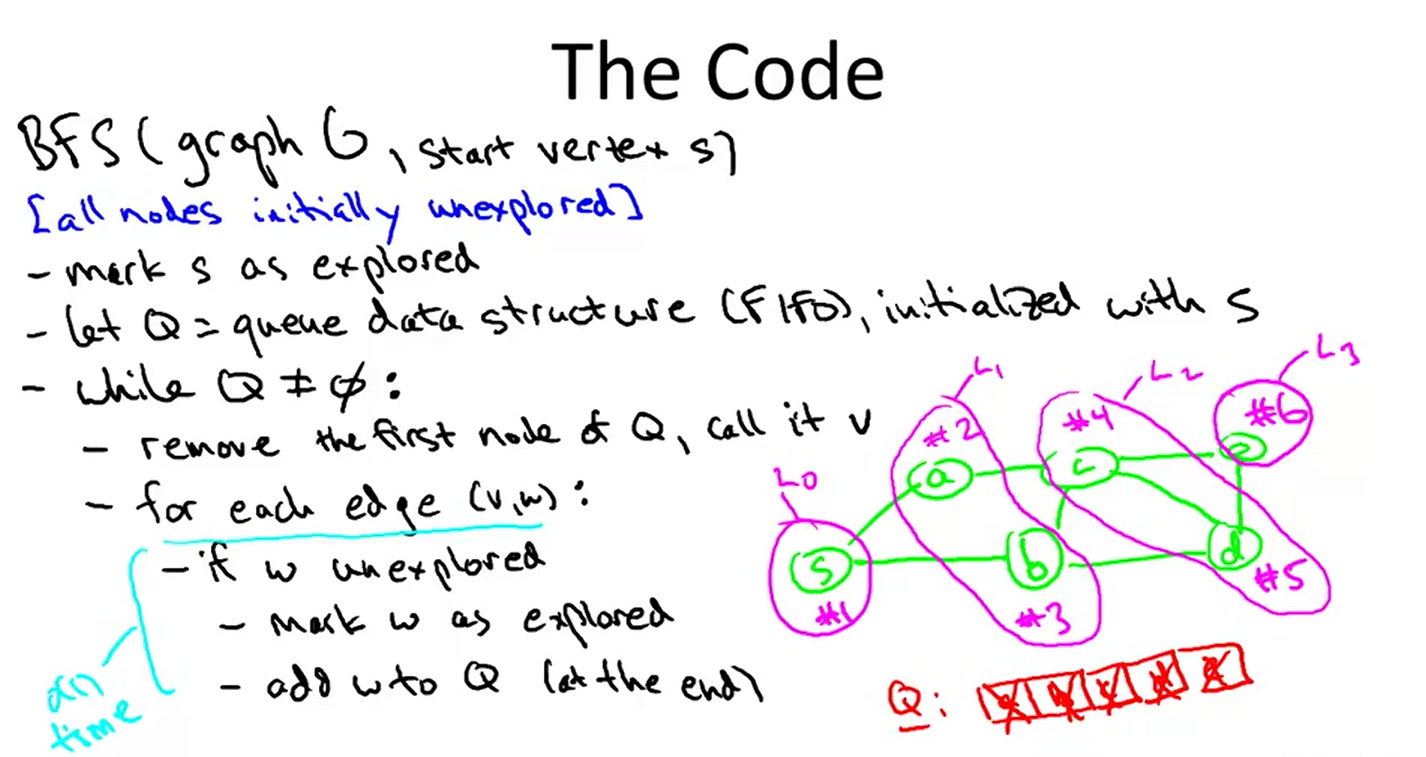 The Code
BFS (graph G, start vertex s)
[all nodes initially unexplored]
- mark s as explored
- let Q = queue data structure (FIFO), initialized with s
- while Q ≠ ∅ :
- remove the first node of Q, call it v
- for each edge (v,w) :
- if w unexplored
- mark w as explored
- add w to Q (at the end)
O(1)
time
L0
L1
L2
L3
#2
#4
#6
a
c
e
s
b
d
#1
#3
#5
Q: